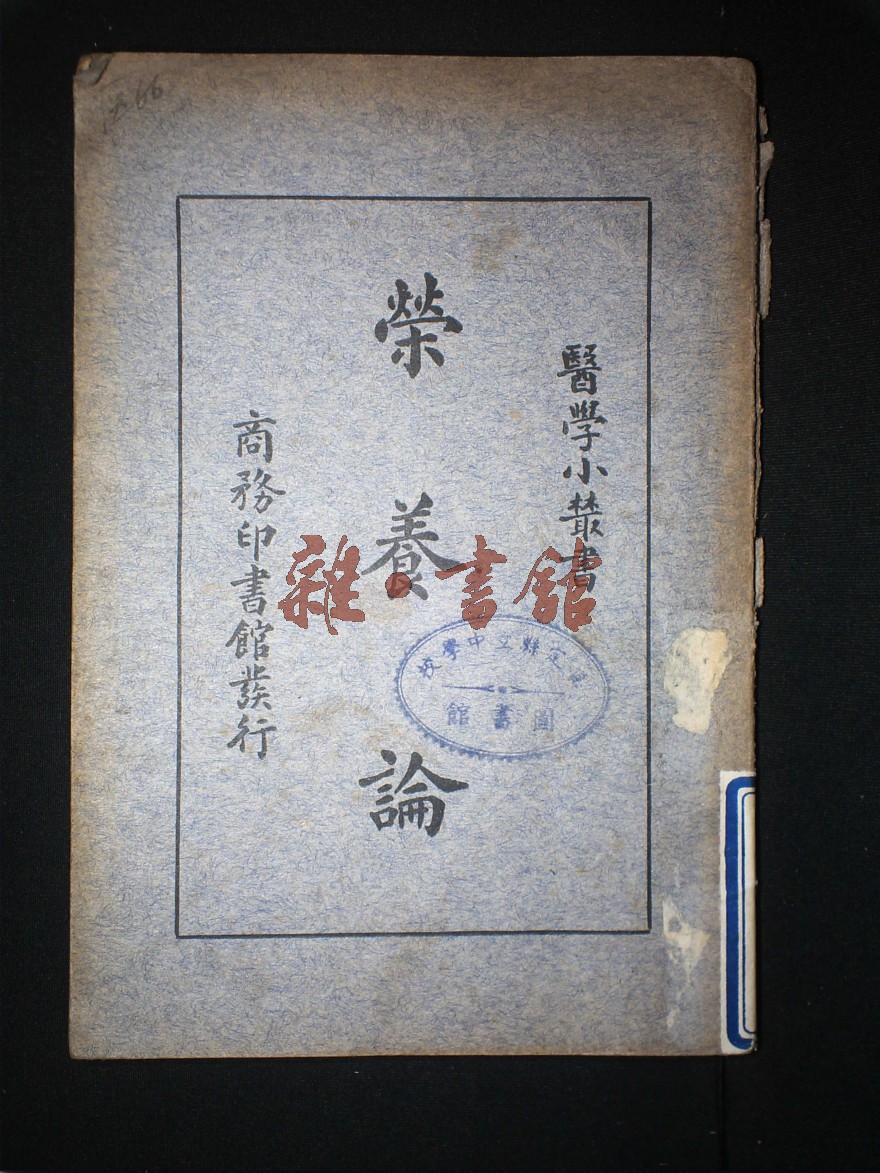 醫學小叢書
榮養論
商務印書館發行
雜·書館
定縣立中學校
圖書館
66